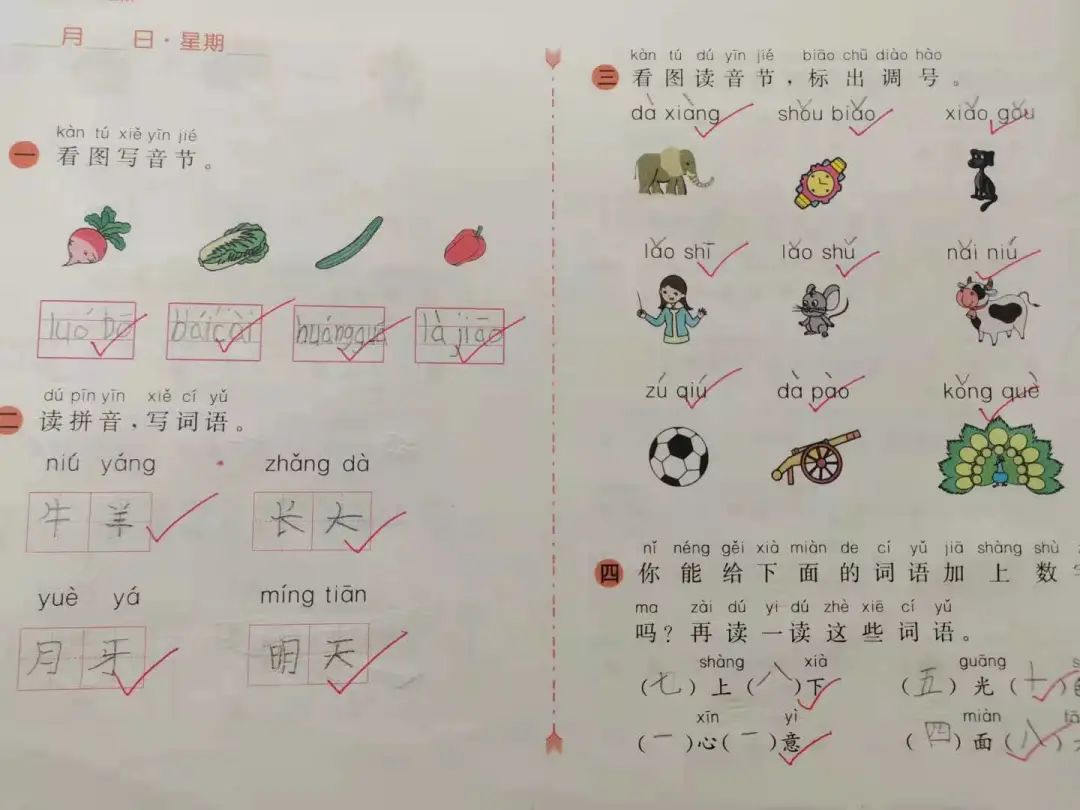 月 日·星期
kàn tú xiě yīn jié
一 看图写音节。
luó bō bái cài huáng guā là jiāo
dú pīn yīn xiě cí yǔ
二 读拼音，写词语。
niú yáng zhǎng dà
牛羊 长大
yuè yá míng tiān
月牙 明天
kàn tú dú yīn jié biāo chū diào hào
三 看图读音节，标出调号。
dà xiàng shǒu biǎo xiǎo gǒu
lǎo shī lǎo shǔ nǎi niú
zú qiú dà pào kǒng què
nǐ néng gěi xià miàn de cí yǔ jiā shàng shù
四 你能给下面的词语加上数
ma zài dú yi dú zhè xiē cí yǔ
吗？再读一读这些词语。
shàng xià guāng
（七）上（八）下 （五）光（十）
xīn yì miàn
（一）心（一）意 （四）面（八）